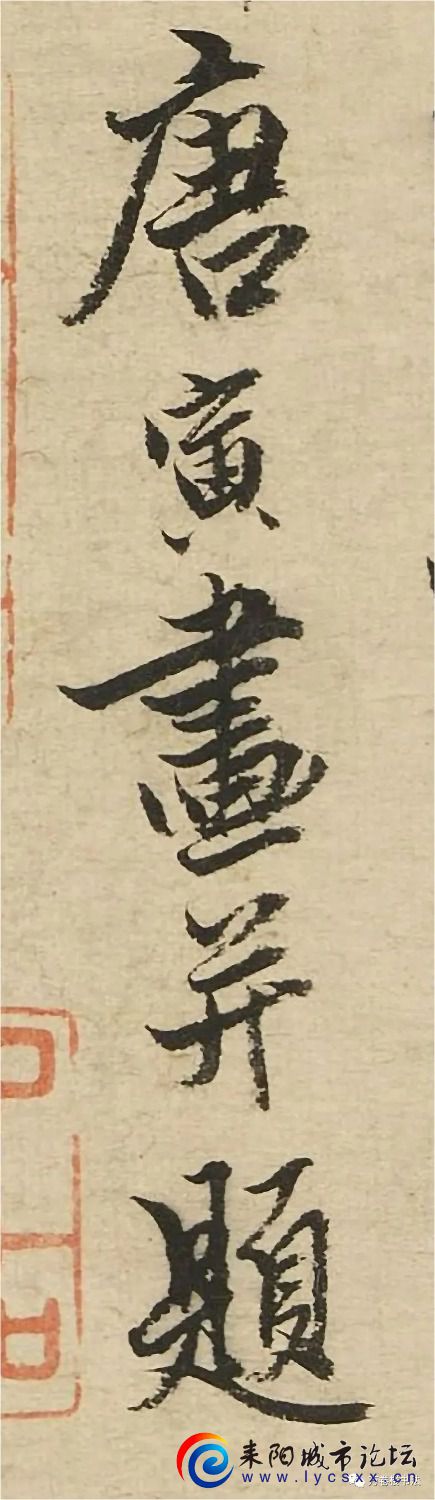 唐寅畫并題
耒阳城市论坛
www.lycsxx.cn